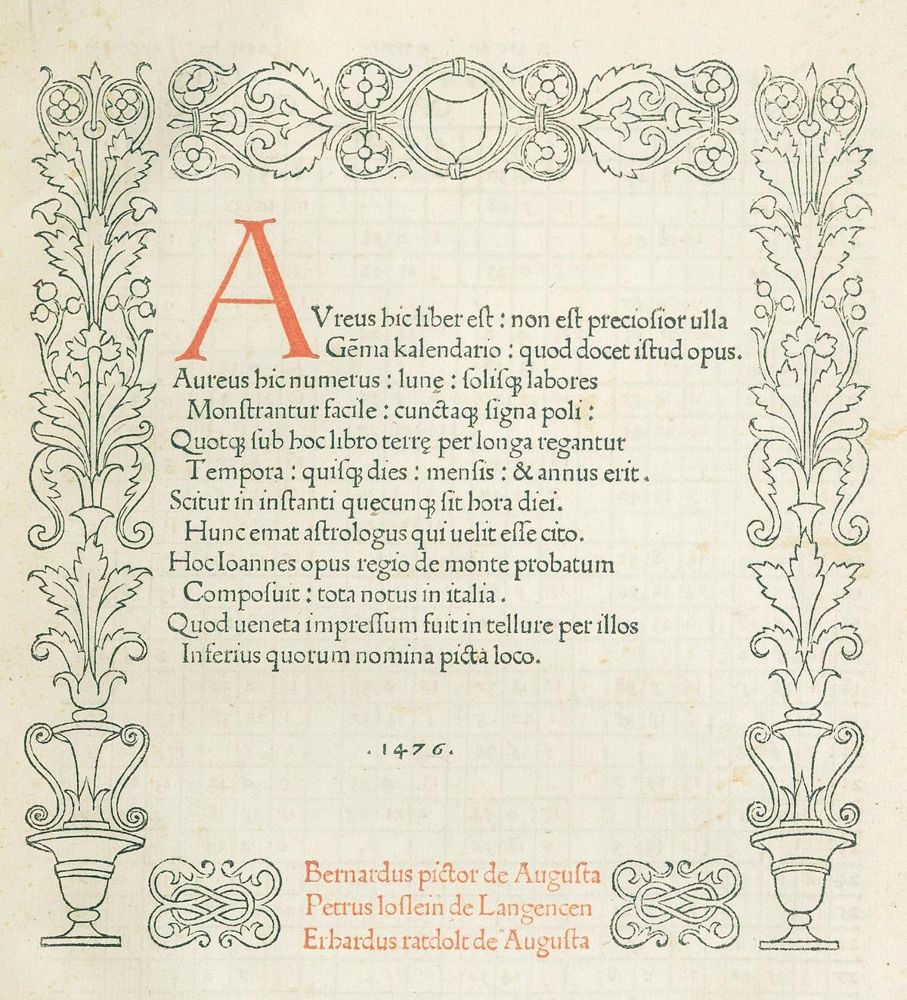 AUreus hic liber est : non est preciosior ulla
Gẽma kalendario : quod docet istud opus.
Aureus hic numerus : lunę : solisqꝫ labores
Monstrantur facile : cunctaqꝫ signa poli :
Quotqꝫ sub hoc libro terrę per longa regantur
Tempora : quisqꝫ dies : mensis : & annus erit.
Scitur in instanti quęcunqꝫ sit hora diei.
Hunc emat astrologus qui uelit esse cito.
Hoc Ioannes opus regio de monte probatum
Composuit : tota notus in italia.
Quod ueneta impressum fuit in tellure per illos
Inferius quorum nomina picta loco.
.1476.
Bernardus pictor de Augusta
Petrus loslein de Langencen
Erhardus ratdolt de Augusta